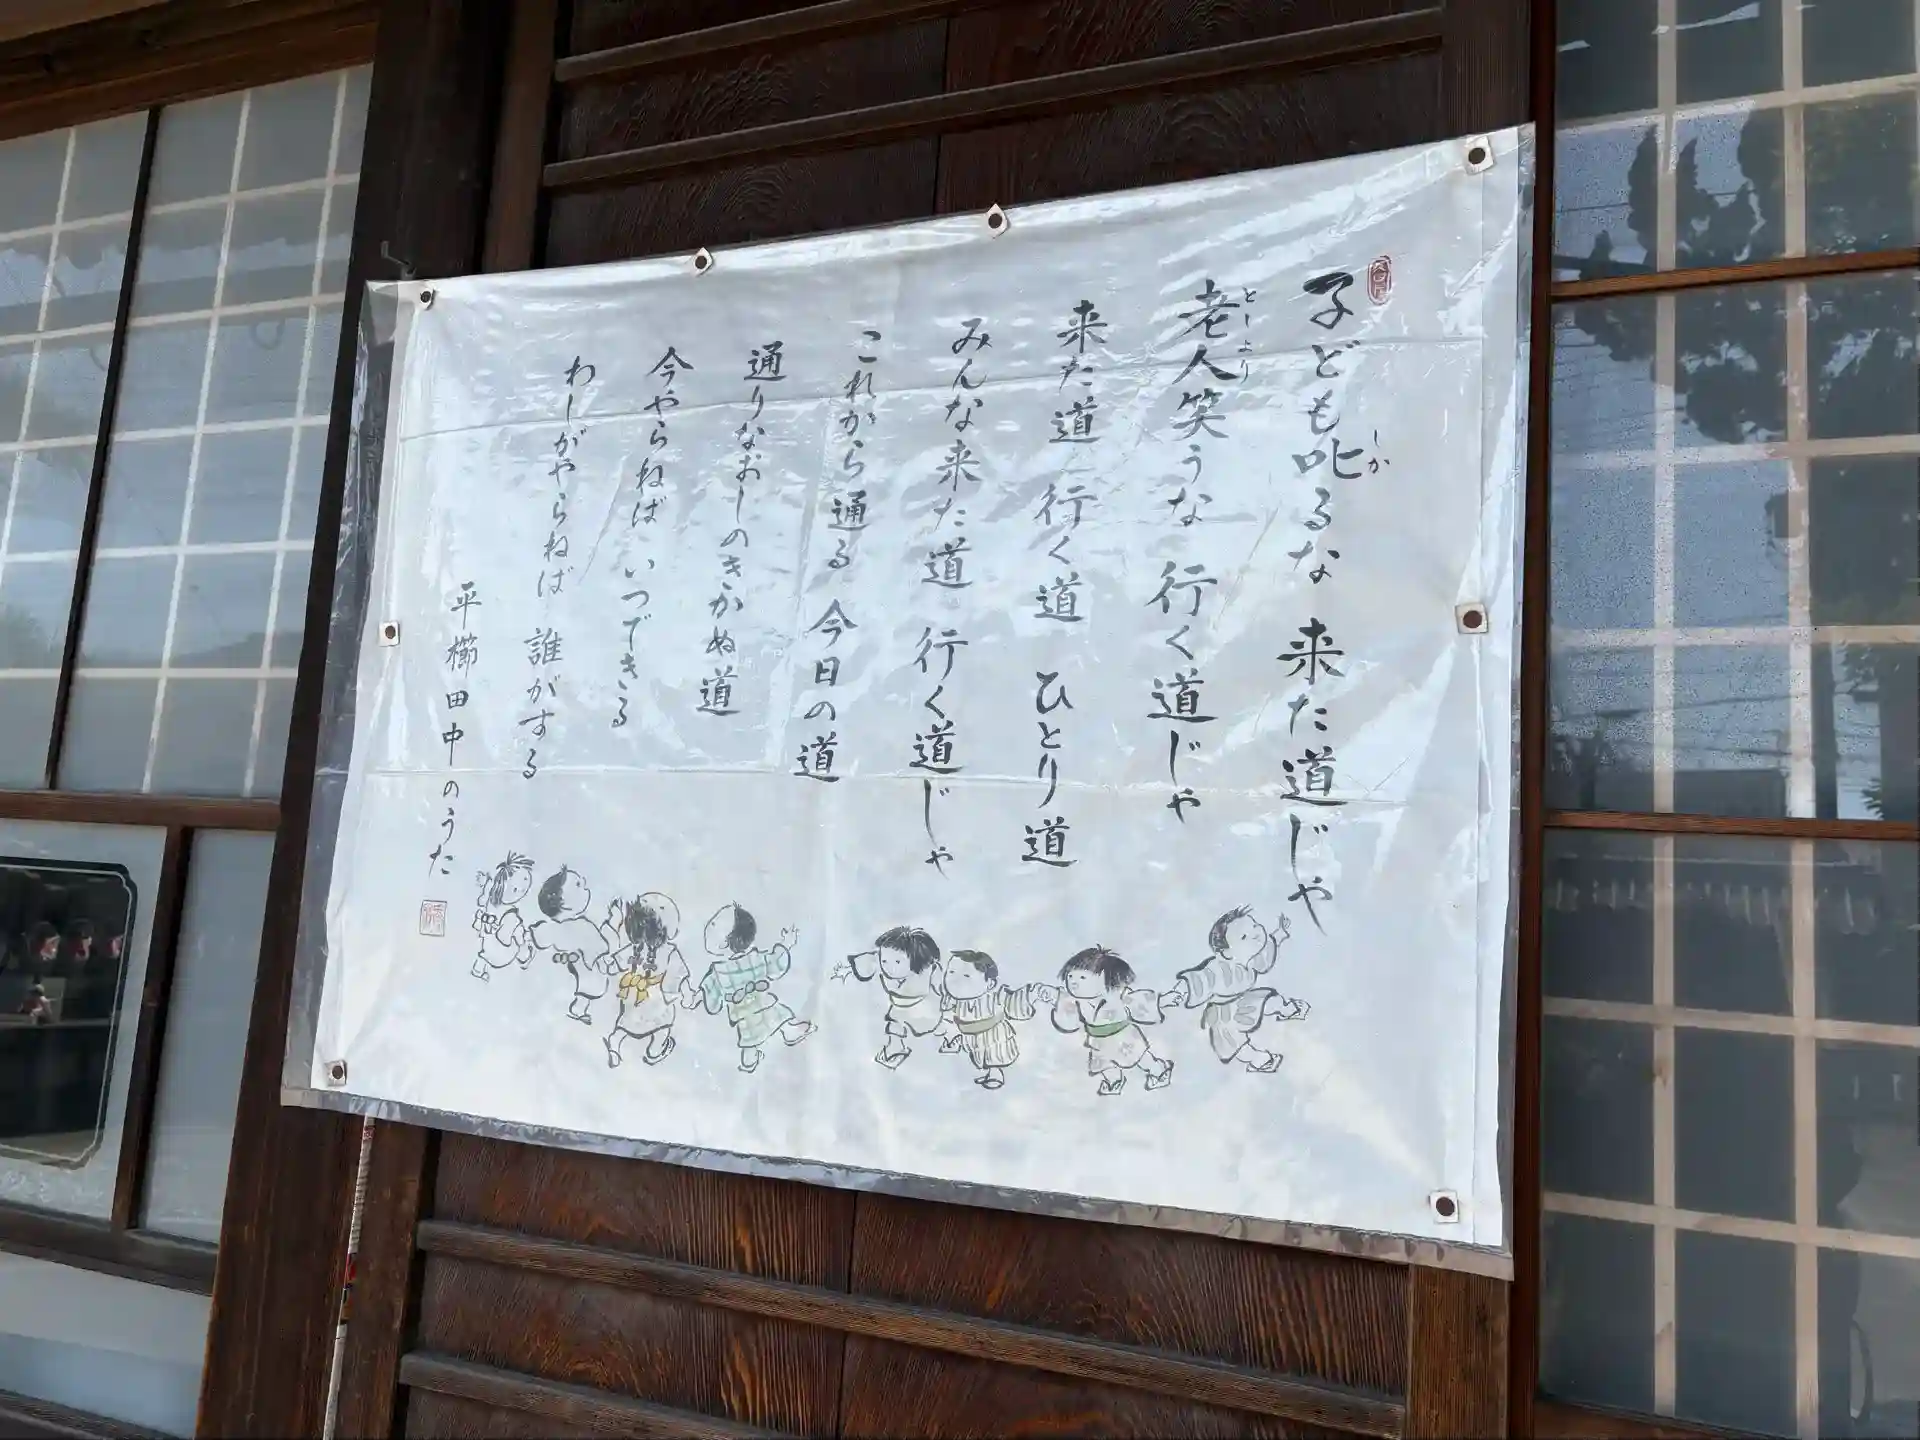 子ども叱るな 来た道じゃ
老人笑うな 行く道じゃ
来た道 行く道 ひとり道
みんな来た道 行く道じゃ
これから通る 今日の道
通りなおしのきかぬ道
今やらねば いつできる
わしがやらねば 誰がする
平櫛田中のうた
しか
としより